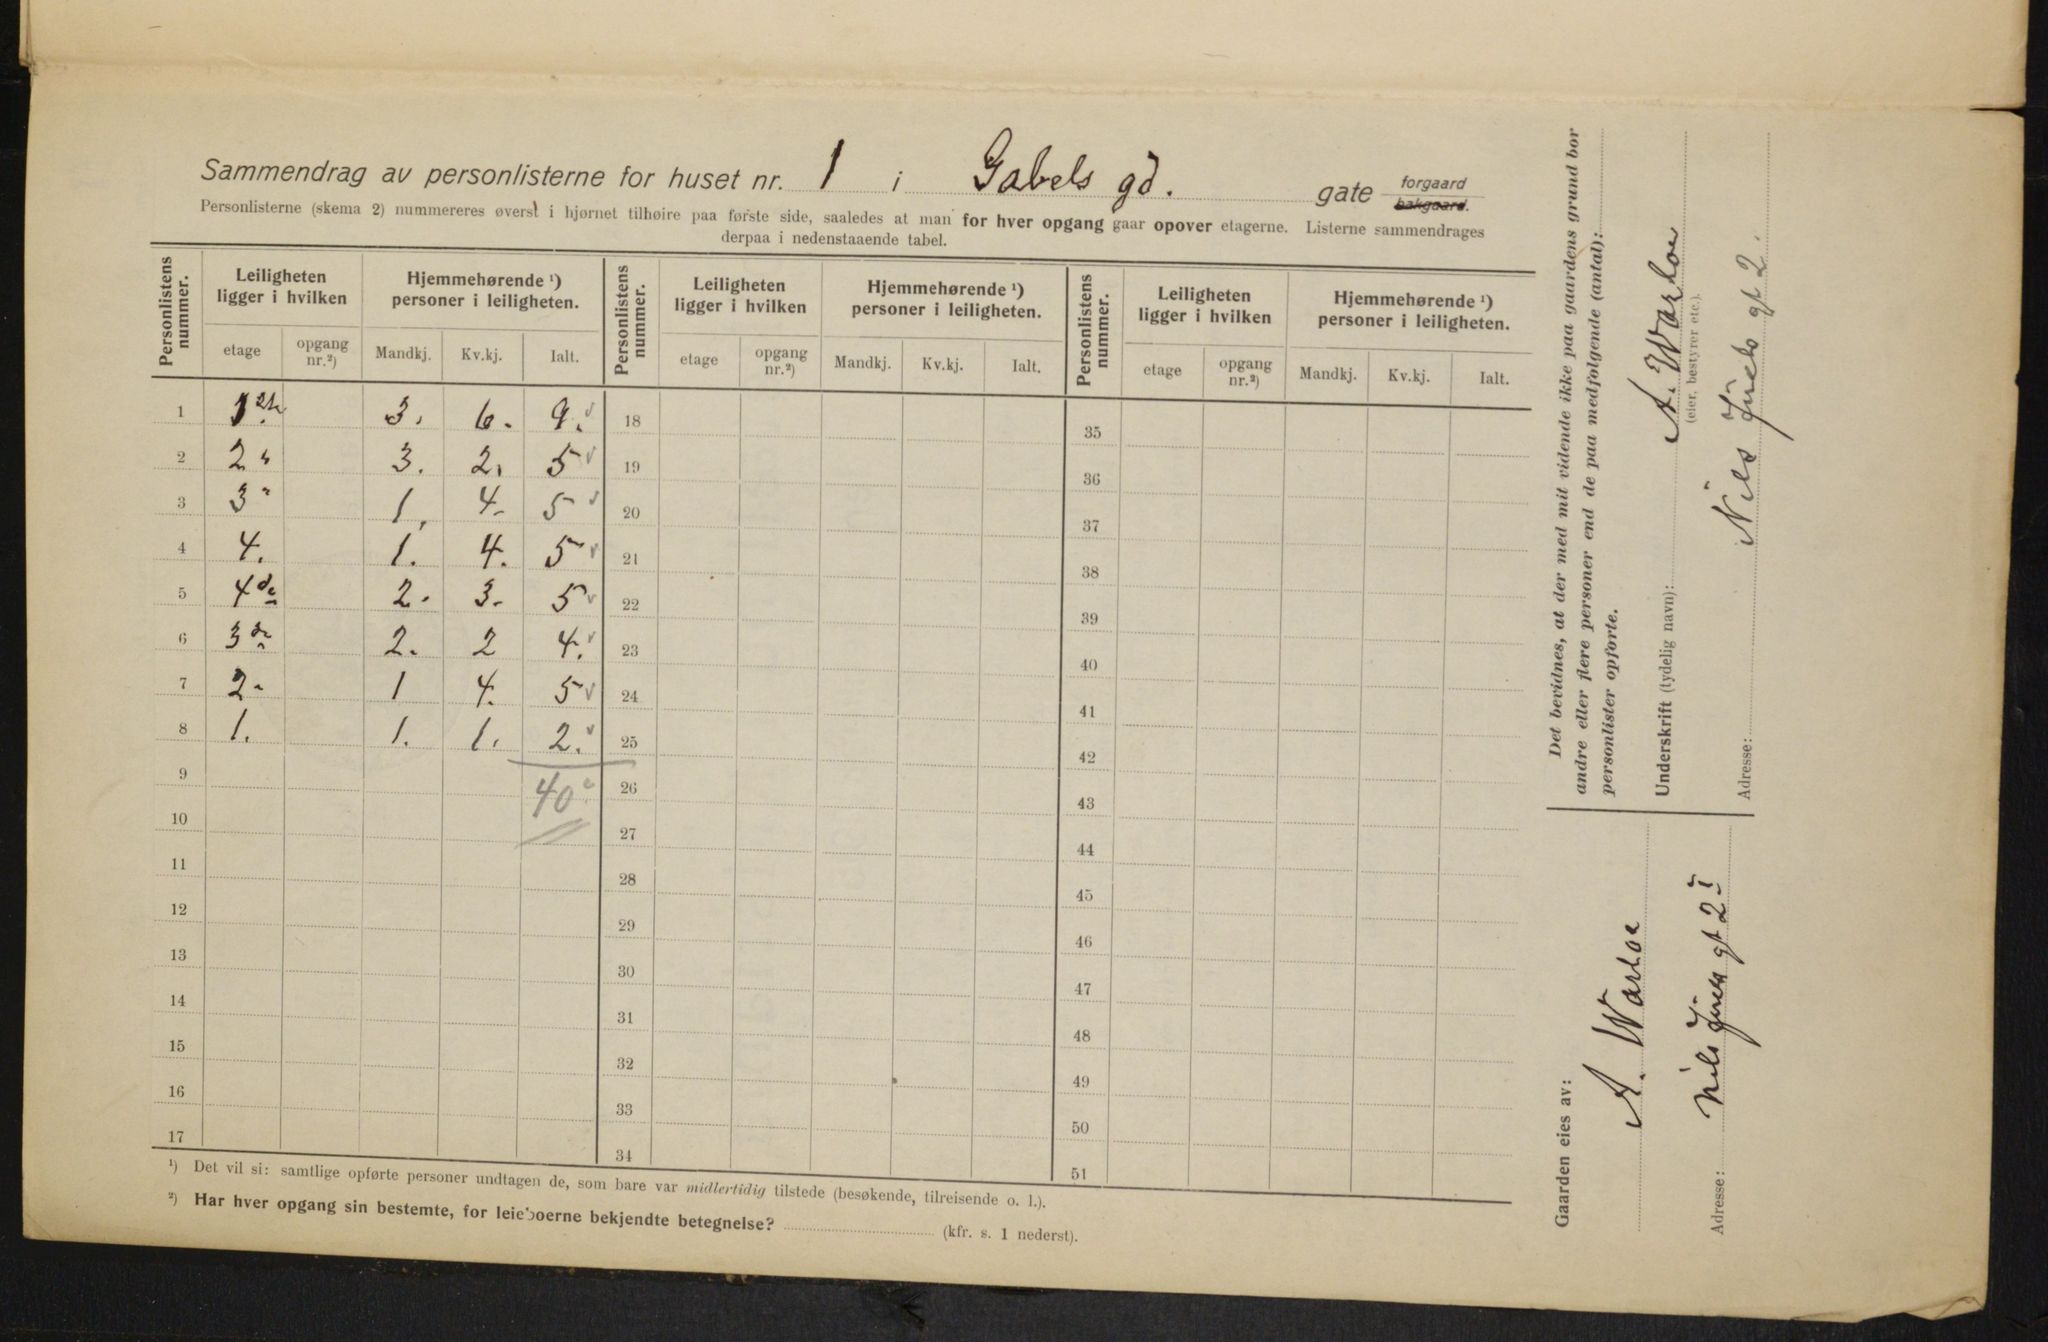 Sammendrag av personlisterne for huset nr. 1 i Gabels gd. gate forgaard bakgaard.
Personlisterne (skema 2) nummereres øverst i hjørnet tilhøire paa første side, saaledes at man for hver opgang gaar opover etagerne. Listerne sammendrages
derpaa i nedenstaaende tabel.
Personlistens nummer. Leiligheten ligger i hvilken Hjemmehørende ¹) personer i leiligheten. Personlistens nummer. Leiligheten ligger i hvilken Hjemmehørende ¹) personer i leiligheten. Personlistens nummer. Leiligheten ligger i hvilken Hjemmehørende ¹) personer i leiligheten.
etage opgang nr.²) Mandkj. Kv.kj. Ialt. etage opgang nr.²) Mandkj. Kv.kj. Ialt. etage opgang nr.²) Mandkj. Kv.kj. Ialt.
1 1 3. 6. 9. 18 35
2 2 " 3. 2. 5 19 36
3 3 " 1. 4. 5 20 37
4 4. 1. 4. 5 21 38
5 4 de 2. 3. 5 22 39
6 3 2. 2 4. 23 40
7 2 " 1 4. 5 24 41
8 1. 1. 1. 2. 25 42
9 40 26 43
10 27 44
11 28 45
12 29 46
13 30 47
14 31 48
15 32 49
16 33 50
17 34 51
¹) Det vil si: samtlige opførte personer undtagen de, som bare var midlertidig tilstede (besøkende, tilreisende o. l.).
²) Har hver opgang sin bestemte, for leieboerne bekjendte betegnelse? (kfr. s. 1 nederst).
Det bevidnes, at der med mit vidende ikke paa gaardens grund bor
andre eller flere personer end de paa medfølgende (antal):
personlister opførte.
Underskrift (tydelig navn): A. Warloe
(eier, bestyrer etc.).
Adresse: Nils Juels gt 2.
Gaarden eies av:
A. Warloe
Adresse: Nils Juels gt 2 I